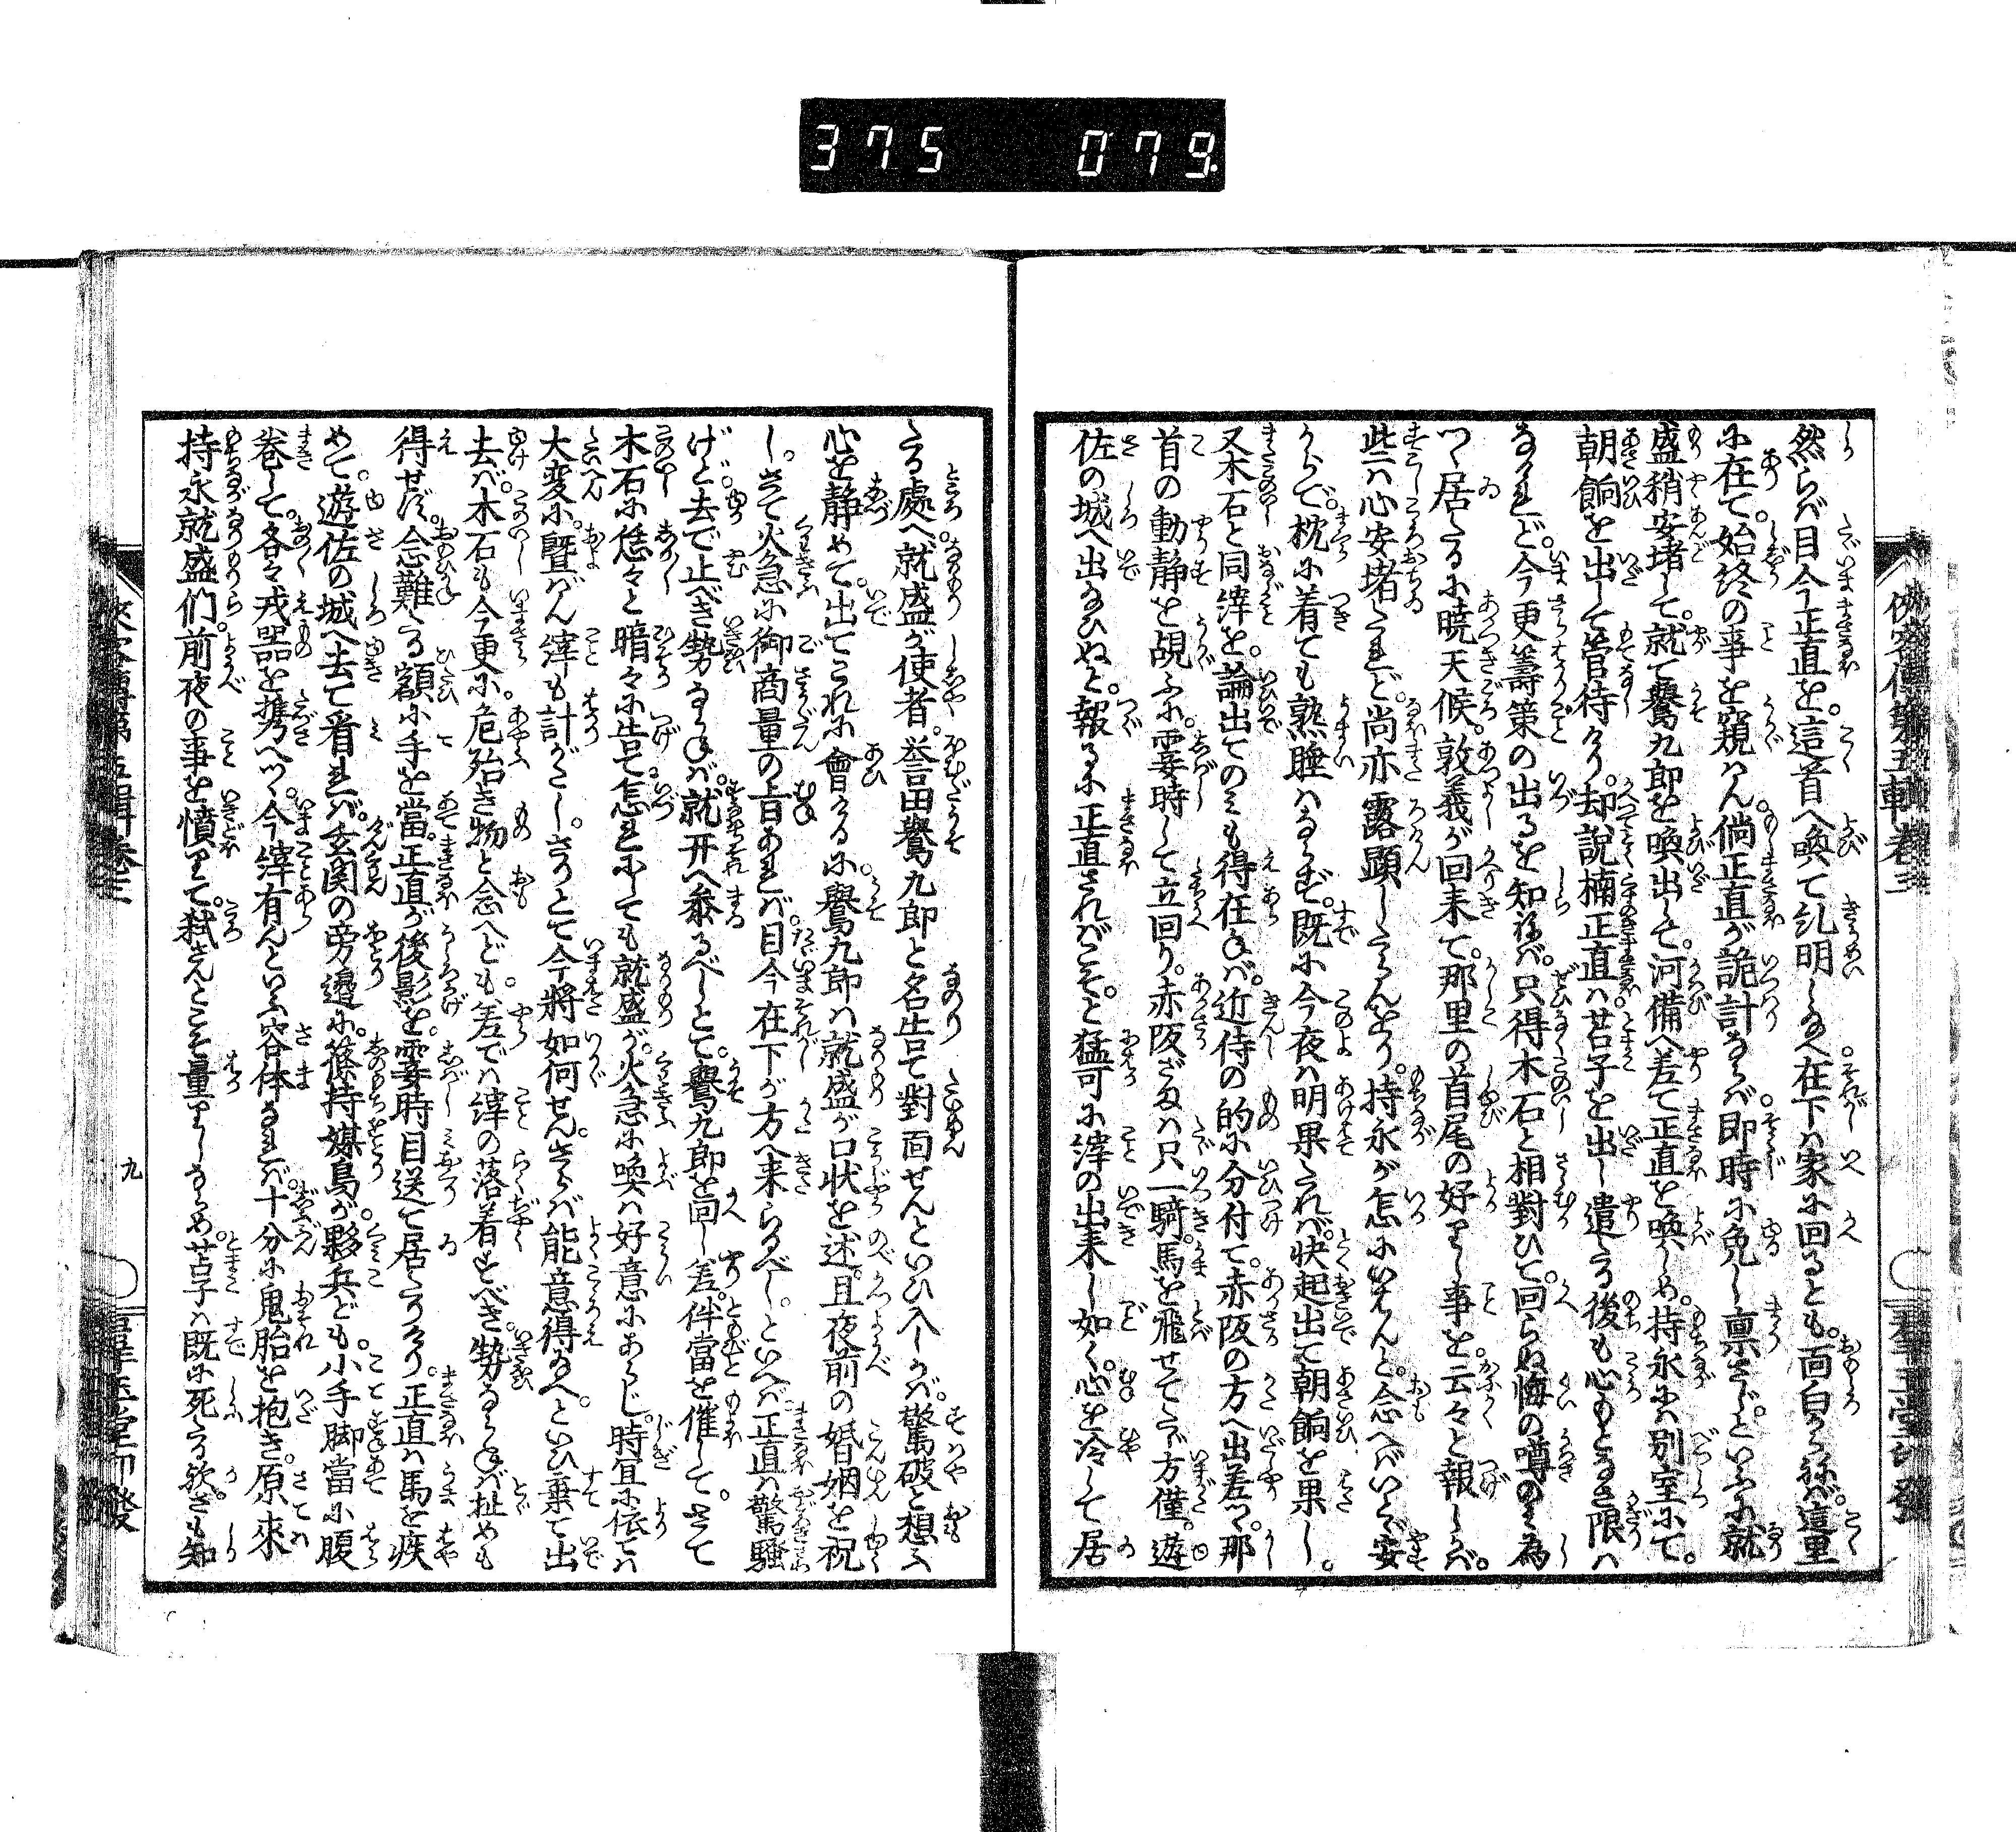 375 079
然らば目今正直を。這首へ喚て糺明しなへ在下は家に回るとも。面白からねば。這里
に在て。始終の事を窺はん。倘正直が詭計ならば即時に免し禀さじ。といふに就
盛稍安堵して。就て鷽九郎を喚出して。河備へ差て正直を喚しめ。持永には別室にて。
朝餉を出して管待けり。却說楠正直は苫子を出し遣たる後も心もとなき限は
なけれど。今更籌策の出るを知ねば。只得木石と相對ひて。回らぬ悔の噂のみ為
つゝ居たるに曉天候。敦義が回来て。那里の首尾の好りし事を。云々と報しかば。
些は心安堵たれど。尚亦露顕したらんより。持永が怎にかせんと。念へばいとゞ安
からで。枕に着ても熟睡はならず。既に今夜は明果たれば。快起出て朝餉を果し。
又木石と同縡を。論出てのみも得在ねば。近侍の的に分付て。赤阪の方へ出差つゝ。那
首の動静を覘ふに。霎時して立回り。赤阪ざまは只一騎。馬を飛せてたゞ方僅。遊
佐の城へ出なひぬと。報るに正直さればこそ。と猛可に縡の出来し如く。心を冷して居
たる處へ。就盛が使者。誉田鷽九郎と名告て對面せんといひ入しかば。驚破と想ふ
心を静めて。出てこれに會けるに。鷽九郎は就盛が口状を述。且夜前の婚姻を祝
し。さて火急に御商量の旨あれば。目今在下が方へ来らるべし。といへば正直は驚騒
げど。去で止べき勢ならねば。就开へ參るべしとて。鷽九郎を回し差。伴當を催して。さて
木石に恁々と暗々に告て怎れにしても就盛が。火急に喚は好意にあらじ。時宜に依ては
大変に。曁ばん縡も計がたし。さりとて今將如何せん。さらば能意得なへ。といひ棄て出
去ば。木石も今更に。危殆き物と念へども。差では縡の落着すべき勢ならねば扯めも
得せず。念難たる額に手を當。正直が後影を。霎時目送て居たりけり。正直は馬を疾
めて。遊佐の城へ去て看れば。玄関の旁邊に。篠持媒鳥が夥兵ども。小手脚當に腹
巻して。各々戎噐を携へつゝ。今縡有んといふ容体なれば。十分に鬼胎を抱き。原來
持永就盛們。前夜の事を憤りて。弒さんとこそ量りしならめ。苫子は既に死たる歟。さも知
九